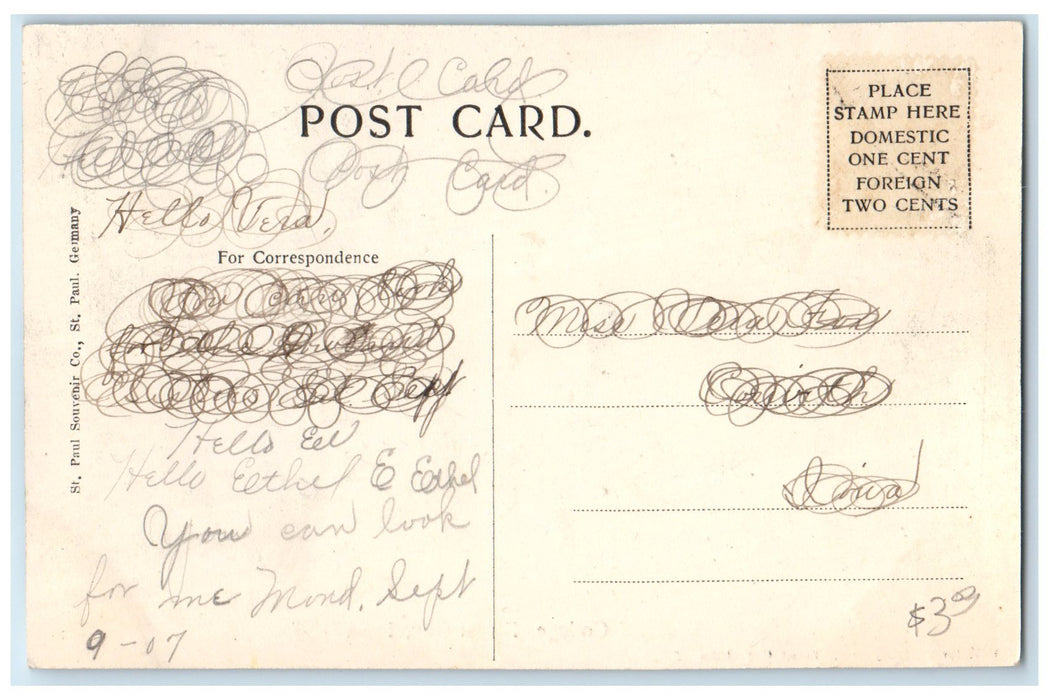 Post Card
POST CARD.
Post Card.
PLACE
STAMP HERE
DOMESTIC
ONE CENT
FOREIGN
TWO CENTS
Hello Vera,
For Correspondence
You Look
for
Sept
Hello Eel
Hello Eethel E Eethel
You can look
for me Mond. Sept
9-07
St. Paul Souvenir Co., St. Paul. Germany
Miss Vera Fox
Corwith
Iowa
$3 00